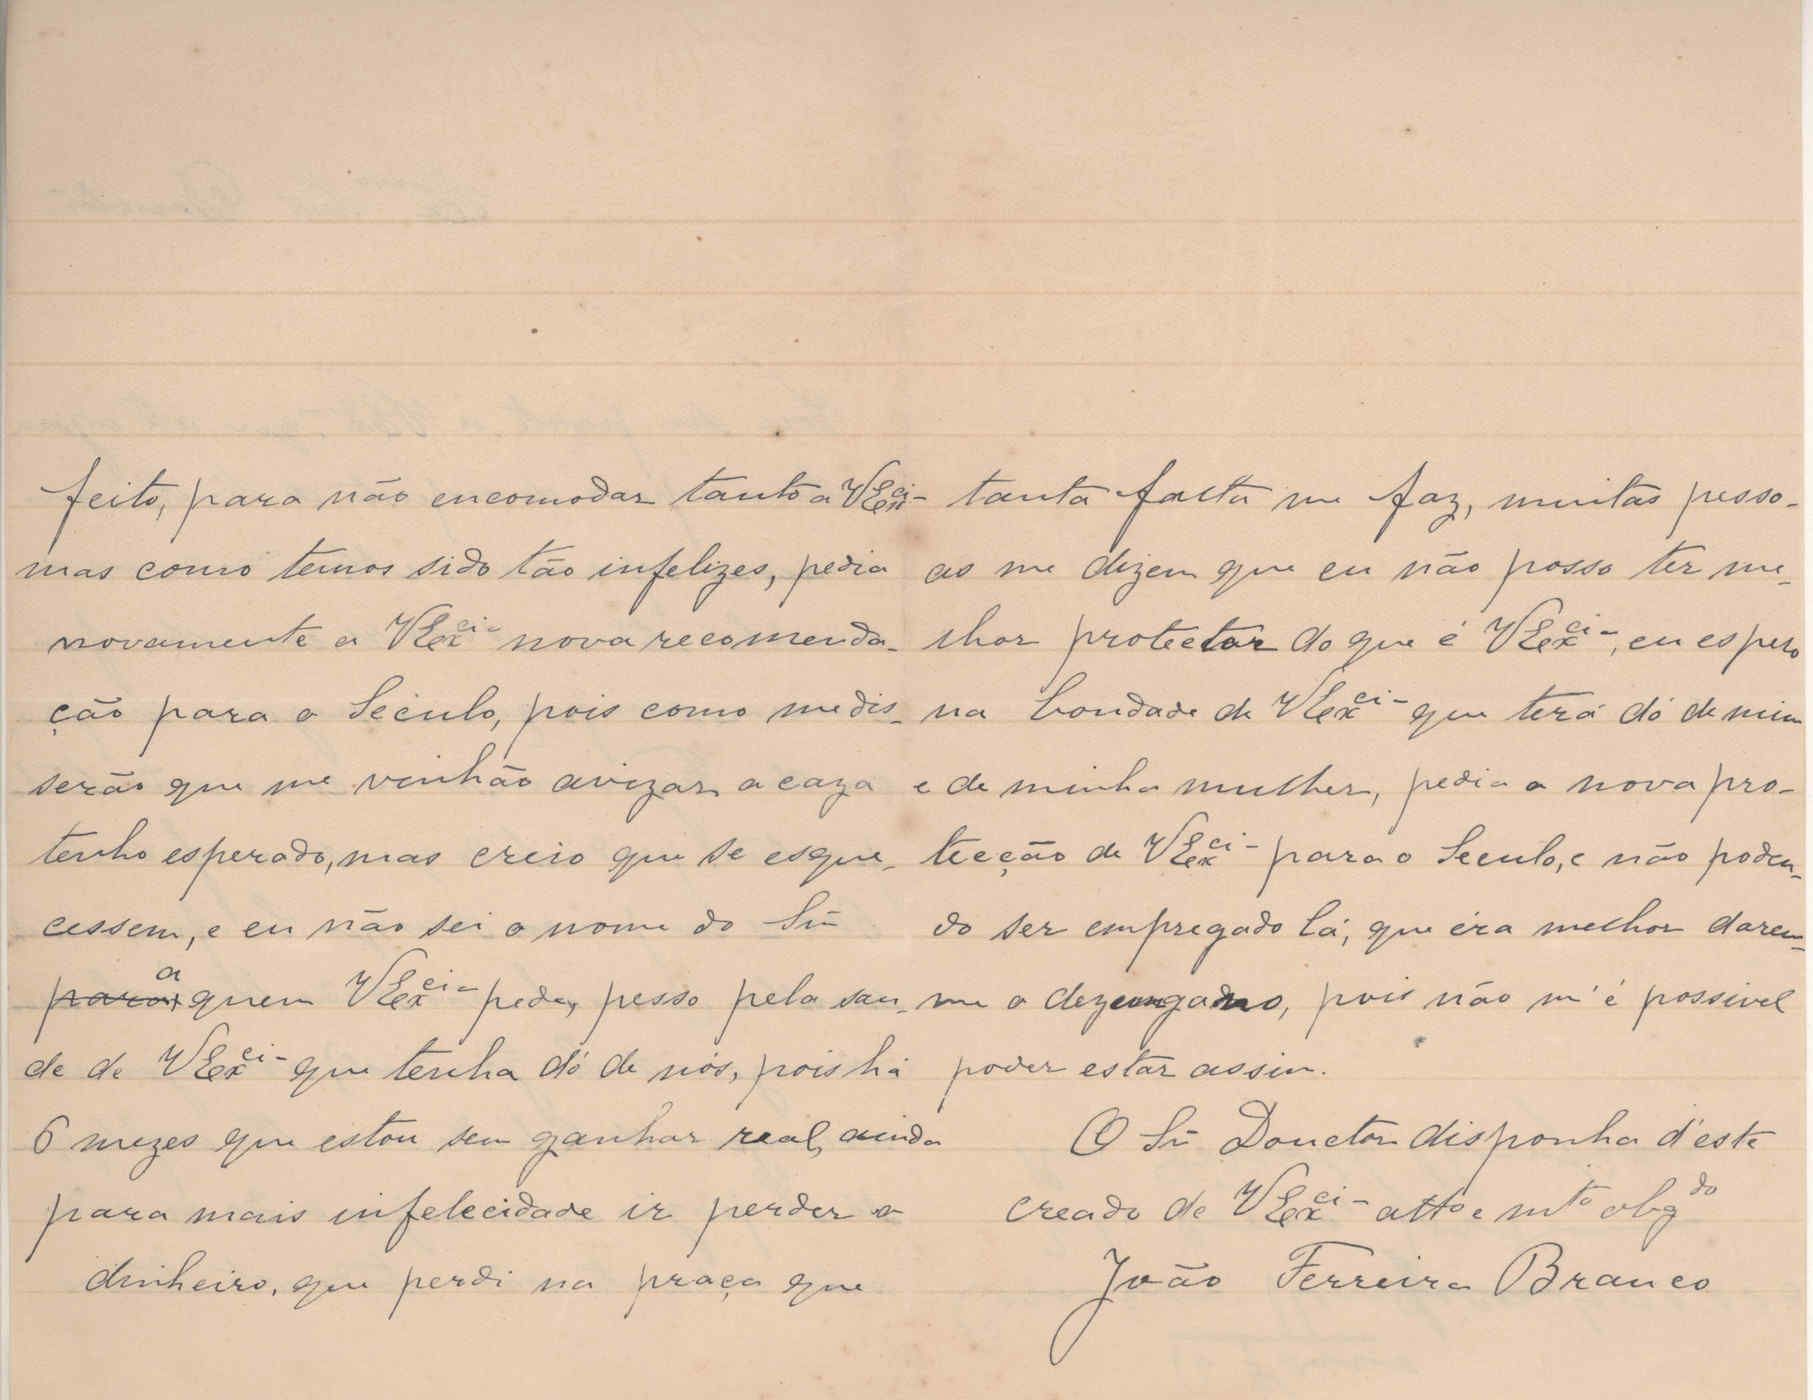 feito, para não encomodar tanto a VExci-
mas como temos sido tão infelizes, pedia
novamente a VExci- nova recomenda-
ção para o Seculo, pois como me dis-
serão que me vinhão avizar a caza
tenho esperado, mas creio que se esque-
cessem, e eu não sei o nome do Snr
para a quem VExci- pede, pesso pela sau-
de de VExci- que tenha dó de nós, pois há
6 mezes que estou sem ganhar real, ainda
para mais infelecidade ir perder o
dinheiro, que perdi na praça que
tanta falta me faz, muitas pesso-
as me dizem que eu não posso ter me-
lhor protector do que é VExci-, eu espero
na bondade de VExci- que terá dó de mim
e de minha mulher, pedia a nova pro-
tecção de VExci- para o Seculo, e não poden-
do ser empregado lá, que éra melhor darem-
me o dezengano, pois não m'é possivel
poder estar assim.
O Snr Douctor disponha d'este
creado de VExci- atto e mto obgdo
João Ferreira Branco